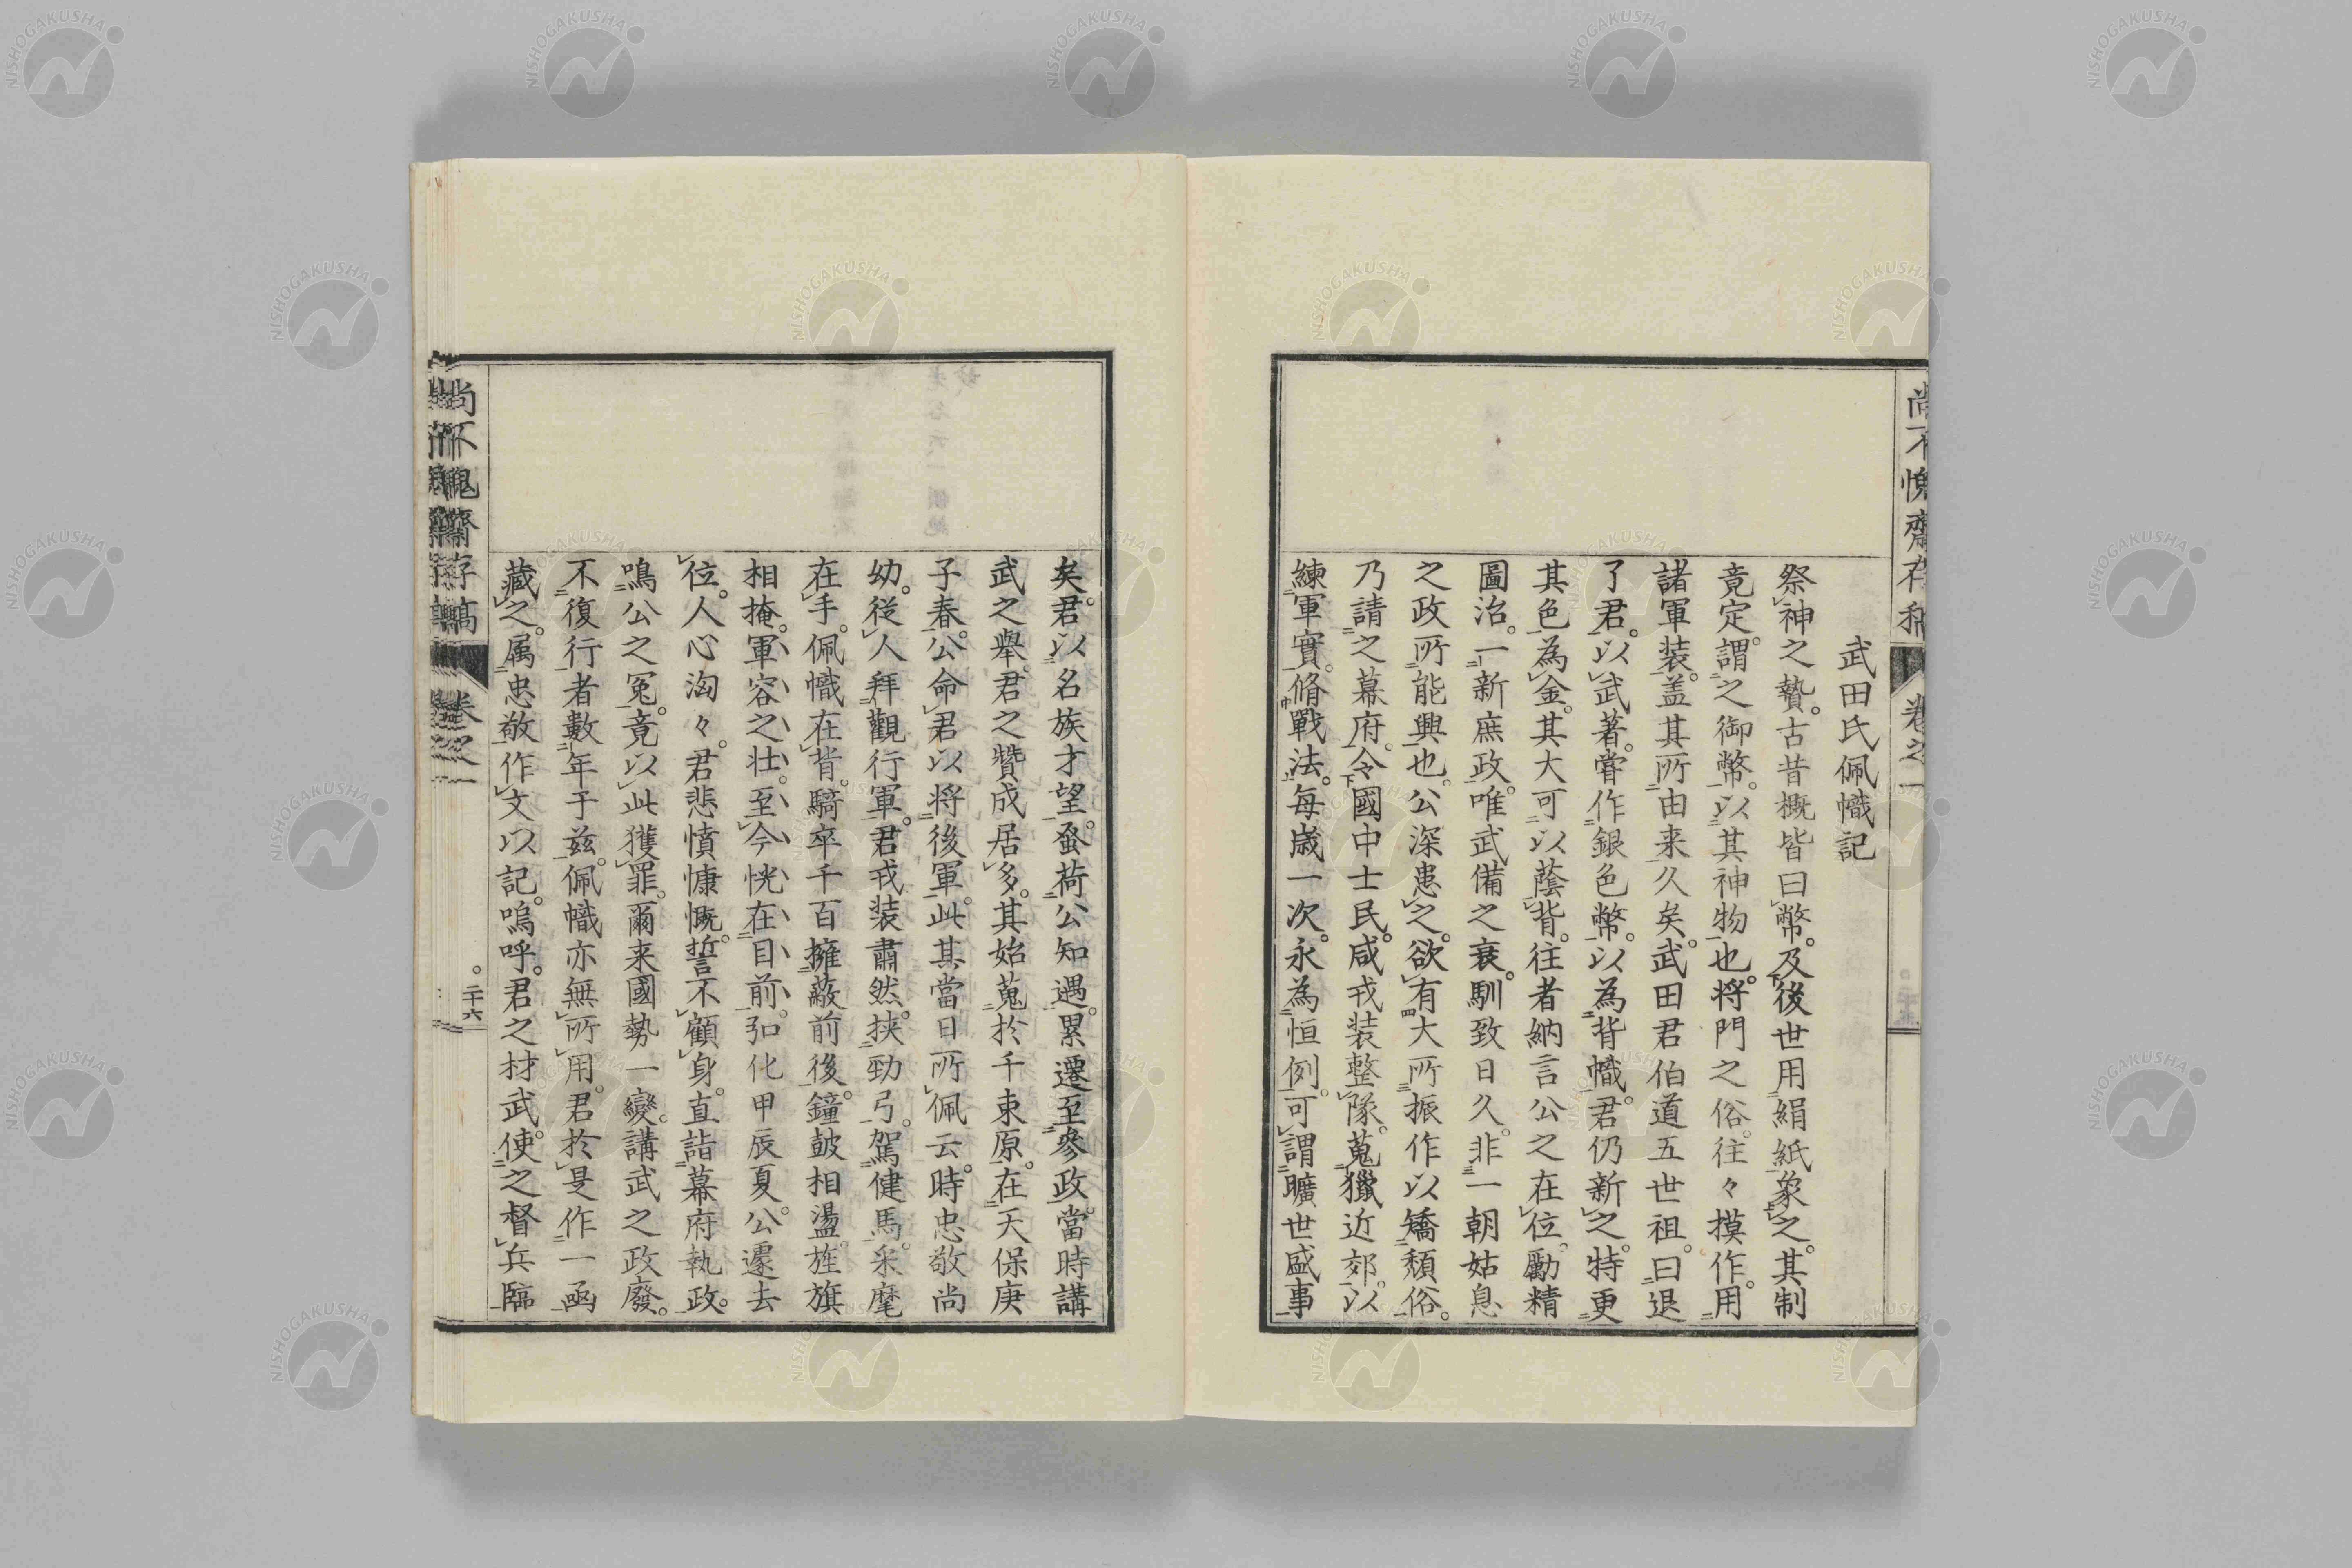 尚不愧齋存稿 卷之一
武田氏佩幟記
祭神之贄。古昔概皆曰幣。及後世用絹紙象之。其制
竟定。謂之御幣。以其神物也。將門之俗。往々摸作。用
諸軍装。盖其所由来久矣。武田君伯道五世祖。曰退
了君。以武著。嘗作銀色幣。以為背幟。君仍新之。特更
其色為金。其大可以蔭背。往者納言公之在位。勵精
圖治。一新庶政。唯武備之衰。馴致日久。非一朝姑息
之政所能興也。公深患之。欲有大所振作以矯頽俗。
乃請之幕府。令國中士民。咸戎装整隊。蒐獵近郊。以
練軍實。脩戰法。每歳一次。永為恒例。可謂曠世盛事
矣。君以名族才望。蚤荷公知遇。累遷至參政。當時講
武之舉。君之贊成居多。其始蒐於千束原。在天保庚
子春。公命君以将後軍。此其當日所佩云。時忠敬尚
幼。從人拜觀行軍。君戎装肅然。挟勁弓。駕健馬。采麾
在手。佩幟在背。騎卒千百擁蔽前後。鐘皷相盪旌旗
相掩。軍容之壮。至今恍在目前。弘化甲辰夏。公遽去
位。人心洶々。君悲憤慷慨。誓不顧身。直詣幕府執政。
鳴公之冤。竟以此獲罪。爾来國勢一變。講武之政廢。
不復行者數年于兹。佩幟亦無所用。君於是作一函
藏之。属忠敬作文以記。嗚呼。君之材武。使之督兵臨
尚不愧齋存稿 卷之一 二十六